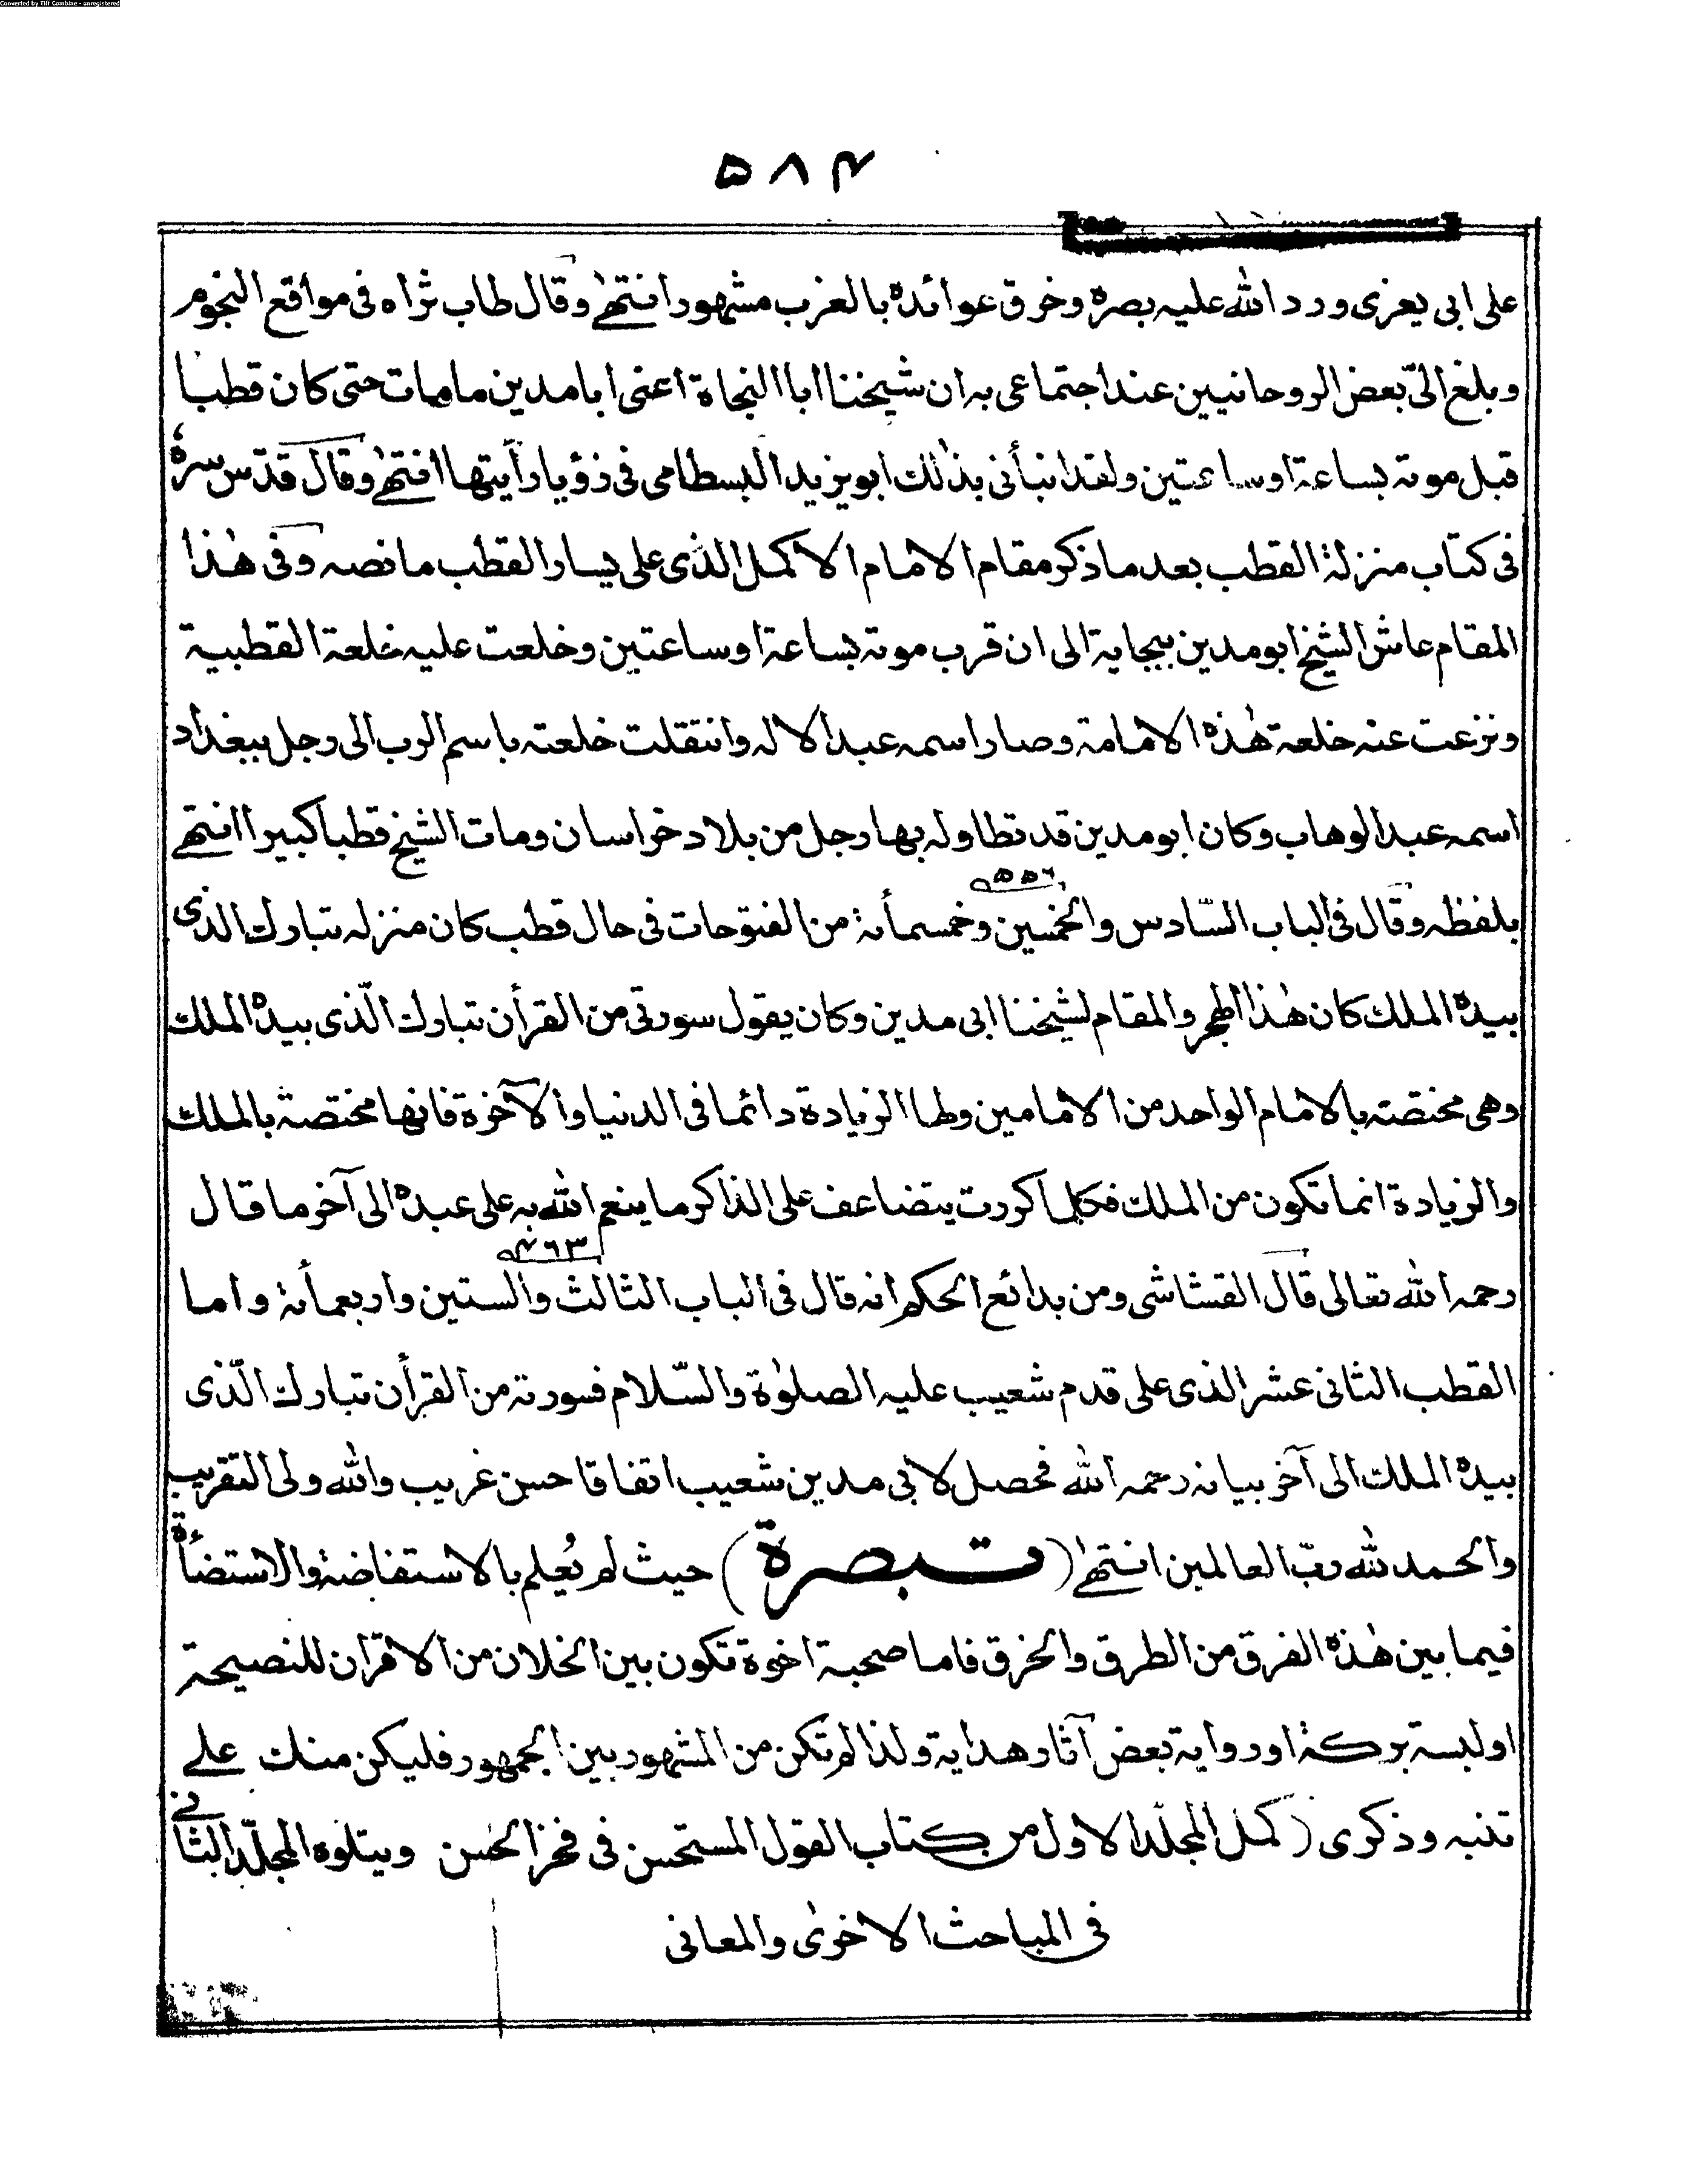 Converted by Tiff Combine - unregistered
۵۸۴
على ابى يعزى ورد الله عليه بصره وخرق عوائده بالغرب مشهور انتهىٰ وقال طاب ثراه فى مواقع النجوم
وبلغ الىّ بعض الروحانيين عند اجتماعى به ان شيخنا ابا النجاة اعنى ابا مدين ما مات حتى كان قطبا
قبل موته بساعة او ساعتين ولقد انبأنى بذٰلك ابو يزيد البسطامى فى رؤيا رأيتها انتهىٰ وقال قدّس سره
فى كتاب منزلة القطب بعد ما ذكر مقام الامام الاكمل الذى على يسار القطب ما نصه وفى هٰذا
المقام عاش الشيخ ابو مدين ببجاية الى ان قرب موته بساعة او ساعتين وخلعت عليه خلعة القطبية
ونزعت عنه خلعة هٰذه الامامة وصار اسمه عبد الاله وانتقلت خلعته باسم الرب الى رجل ببغداد
اسمه عبد الوهاب وكان ابو مدين قد تطاول له بها رجل من بلاد خراسان ومات الشيخ قطبا كبيرا انتهے
۵۵٦
بلفظه وقال فى الباب السّادس والخمسين وخمسمأئة من الفتوحات فى حال قطب كان منزله تبارك الذى
بيده الملك كان هٰذا الهجير والمقام لشيخنا ابى مدين وكان يقول سورتى من القرأن تبارك الّذى بيده الملك
وهى مختصة بالامام الواحد من الامامين ولها الزيادة دائما فى الدنيا والآخرة فانها مختصة بالملك
والزيادة انما تكون من الملك فكلما كررت يتضاعف على الذاكر ما ينعم الله به على عبده الى آخر ما قال
۴٦٣
رحمه الله تعالى قال القشاشى ومن بدائع الحكم انه قال فى الباب الثالث والستين واربعمأئة واما
القطب الثانى عشر الذى على قدم شعيب عليه الصلوٰة والسّلام فسورته من القرأن تبارك الّذى
بيده الملك الى آخر بيانه رحمه الله فحصل لابى مدين شعيب اتفاقا حسن غريب والله ولى التقريب
والحمد لله ربّ العالمين انتهىٰ (تبصرة) حيث لم يُعلم بالاستفاضة والاستضأة
فيما بين هٰذه الفرق من الطرق والخرق فاما صحبة اخوة تكون بين الخلان من الاقران للنصيحة
او لبسة بركة او رواية بعض آثار هداية ولذا لم تكن من المشهور بين الجمهور فليكن منك علے
تنبه وذكرى (كمل المجلّد الاول من كتاب القول المستحسن فى فخر الحسن ويتلوه المجلّد الثانى
فى المباحث الاخرىٰ والمعانى